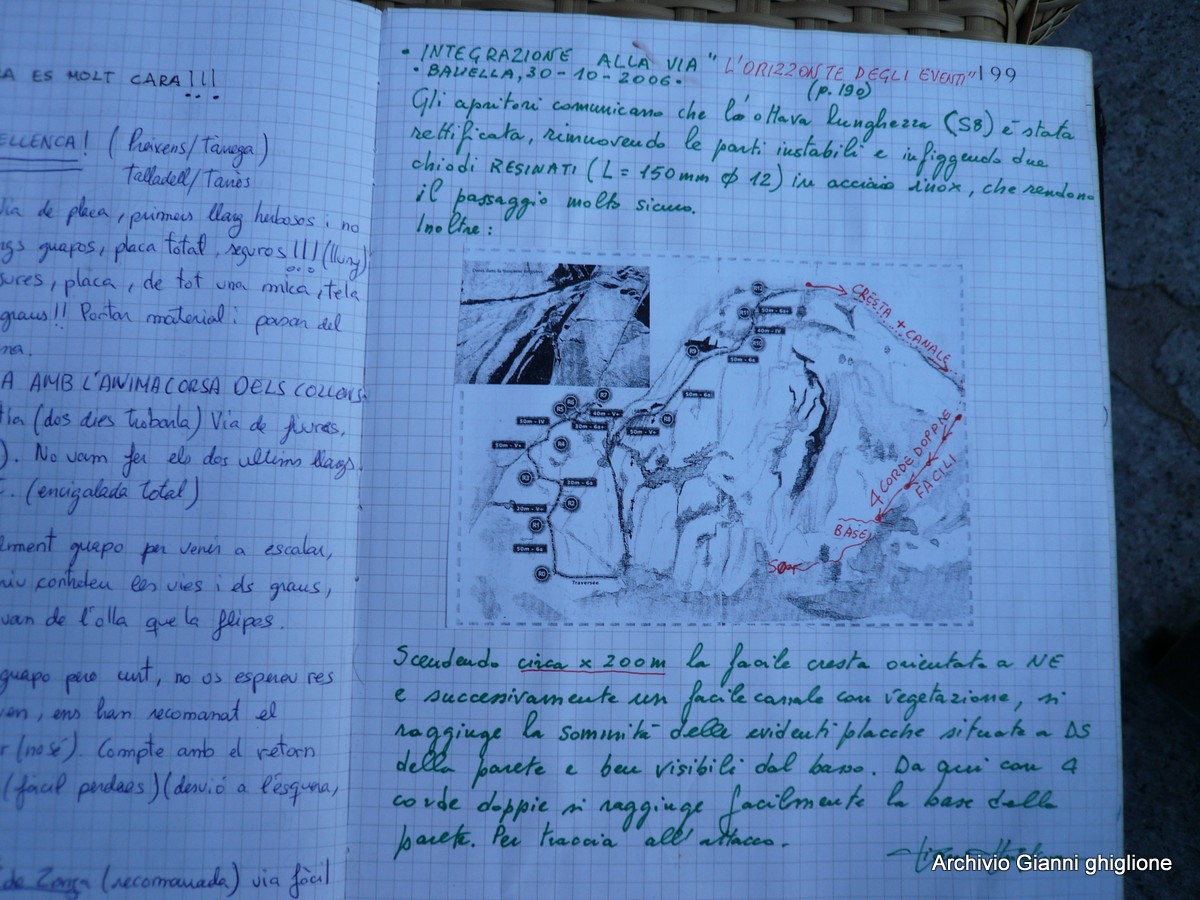 A ES MOLT CARA!!!
ELLENCA! (Peixens/Tàrrega)
Talladell/Tanòs
via de placa, primers llargs herbosos i no
rgs guapos, placa total, seguros !!! (lluny)
sures, placa, de tot una mica, tela
graus!! Portar material i passar del
ma.
A AMB L'ANIMACORSA DELS COLLONS
tia (dos dies trobarla) Via de fisures,
). No vam fer els dos ultims llargs
. (encigalada total)
erment guapo per venir a escalar,
niu coneixeu les vies i els graus,
van de l'olla que la flipes.
guapo però curt, no os espereu res
ven, ens han recomanat el
r (no sé). Compte amb el retorn
(fàcil perdres) (desvió a l'esquerra,
de Zonza (recomanada) via fàcil
199
• INTEGRAZIONE ALLA VIA "L'ORIZZONTE DEGLI EVENTI"
• BAVELLA, 30-10-2006. (p. 190)
Gli apritori comunicano che l'ottava lunghezza (S8) è stata
rettificata, rimuovendo le parti instabili e infiggendo due
chiodi RESINATI (L = 150mm φ 12) in acciaio inox, che rendono
il passaggio molto sicuro.
Inoltre:
CRESTA + CANALE
R12
30m - 6a+
R11
40m - IV
R10
R9
50m - 6a
50m - 6a
R7
R6
R5
40m - V+
R8
50m - IV
30m - 6a+
50m - V+
50m - V+
R4
4 CORDE DOPPIE
FACILI
R3
30m - 6a
R2
20m - V+
R1
BASE
50m - 6a
R0
Traversée
Scendendo circa x 200m la facile cresta orientata a NE
e successivamente un facile canale con vegetazione, si
raggiunge la sommità delle evidenti placche situate a DS
della parete e ben visibili dal basso. Da qui con 4
corde doppie si raggiunge facilmente la base della
parete. Per traccia all'attacco.
Archivio Gianni ghiglione